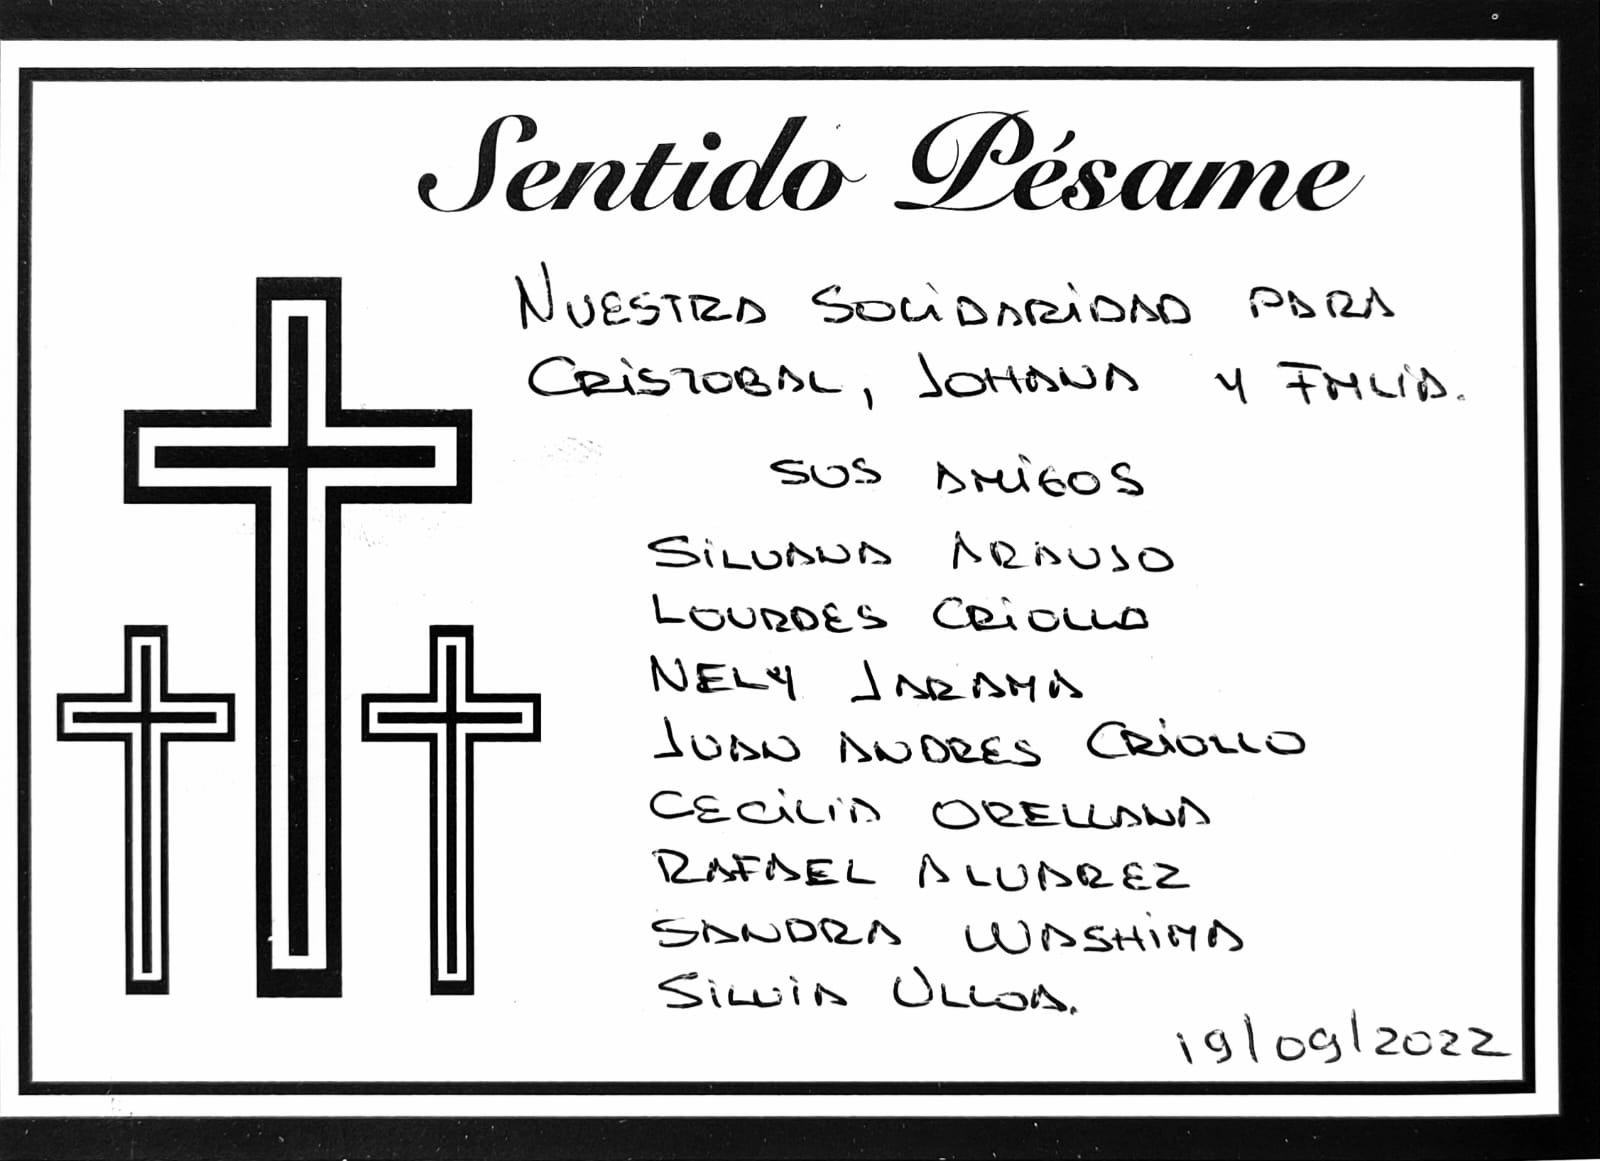 Sentido Pésame
NUESTRA SOLIDARIDAD PARA
CRISTOBAL, JOHANA Y FMLIA.
SUS AMIGOS
SILVANA ARAUJO
LOURDES CRIOLLO
NELY JARAMA
JUAN ANDRES CRIOLLO
CECILIA ORELLANA
RAFAEL ALVAREZ
SANDRA WASHIMA
SILVIA ULLOA.
19/09/2022